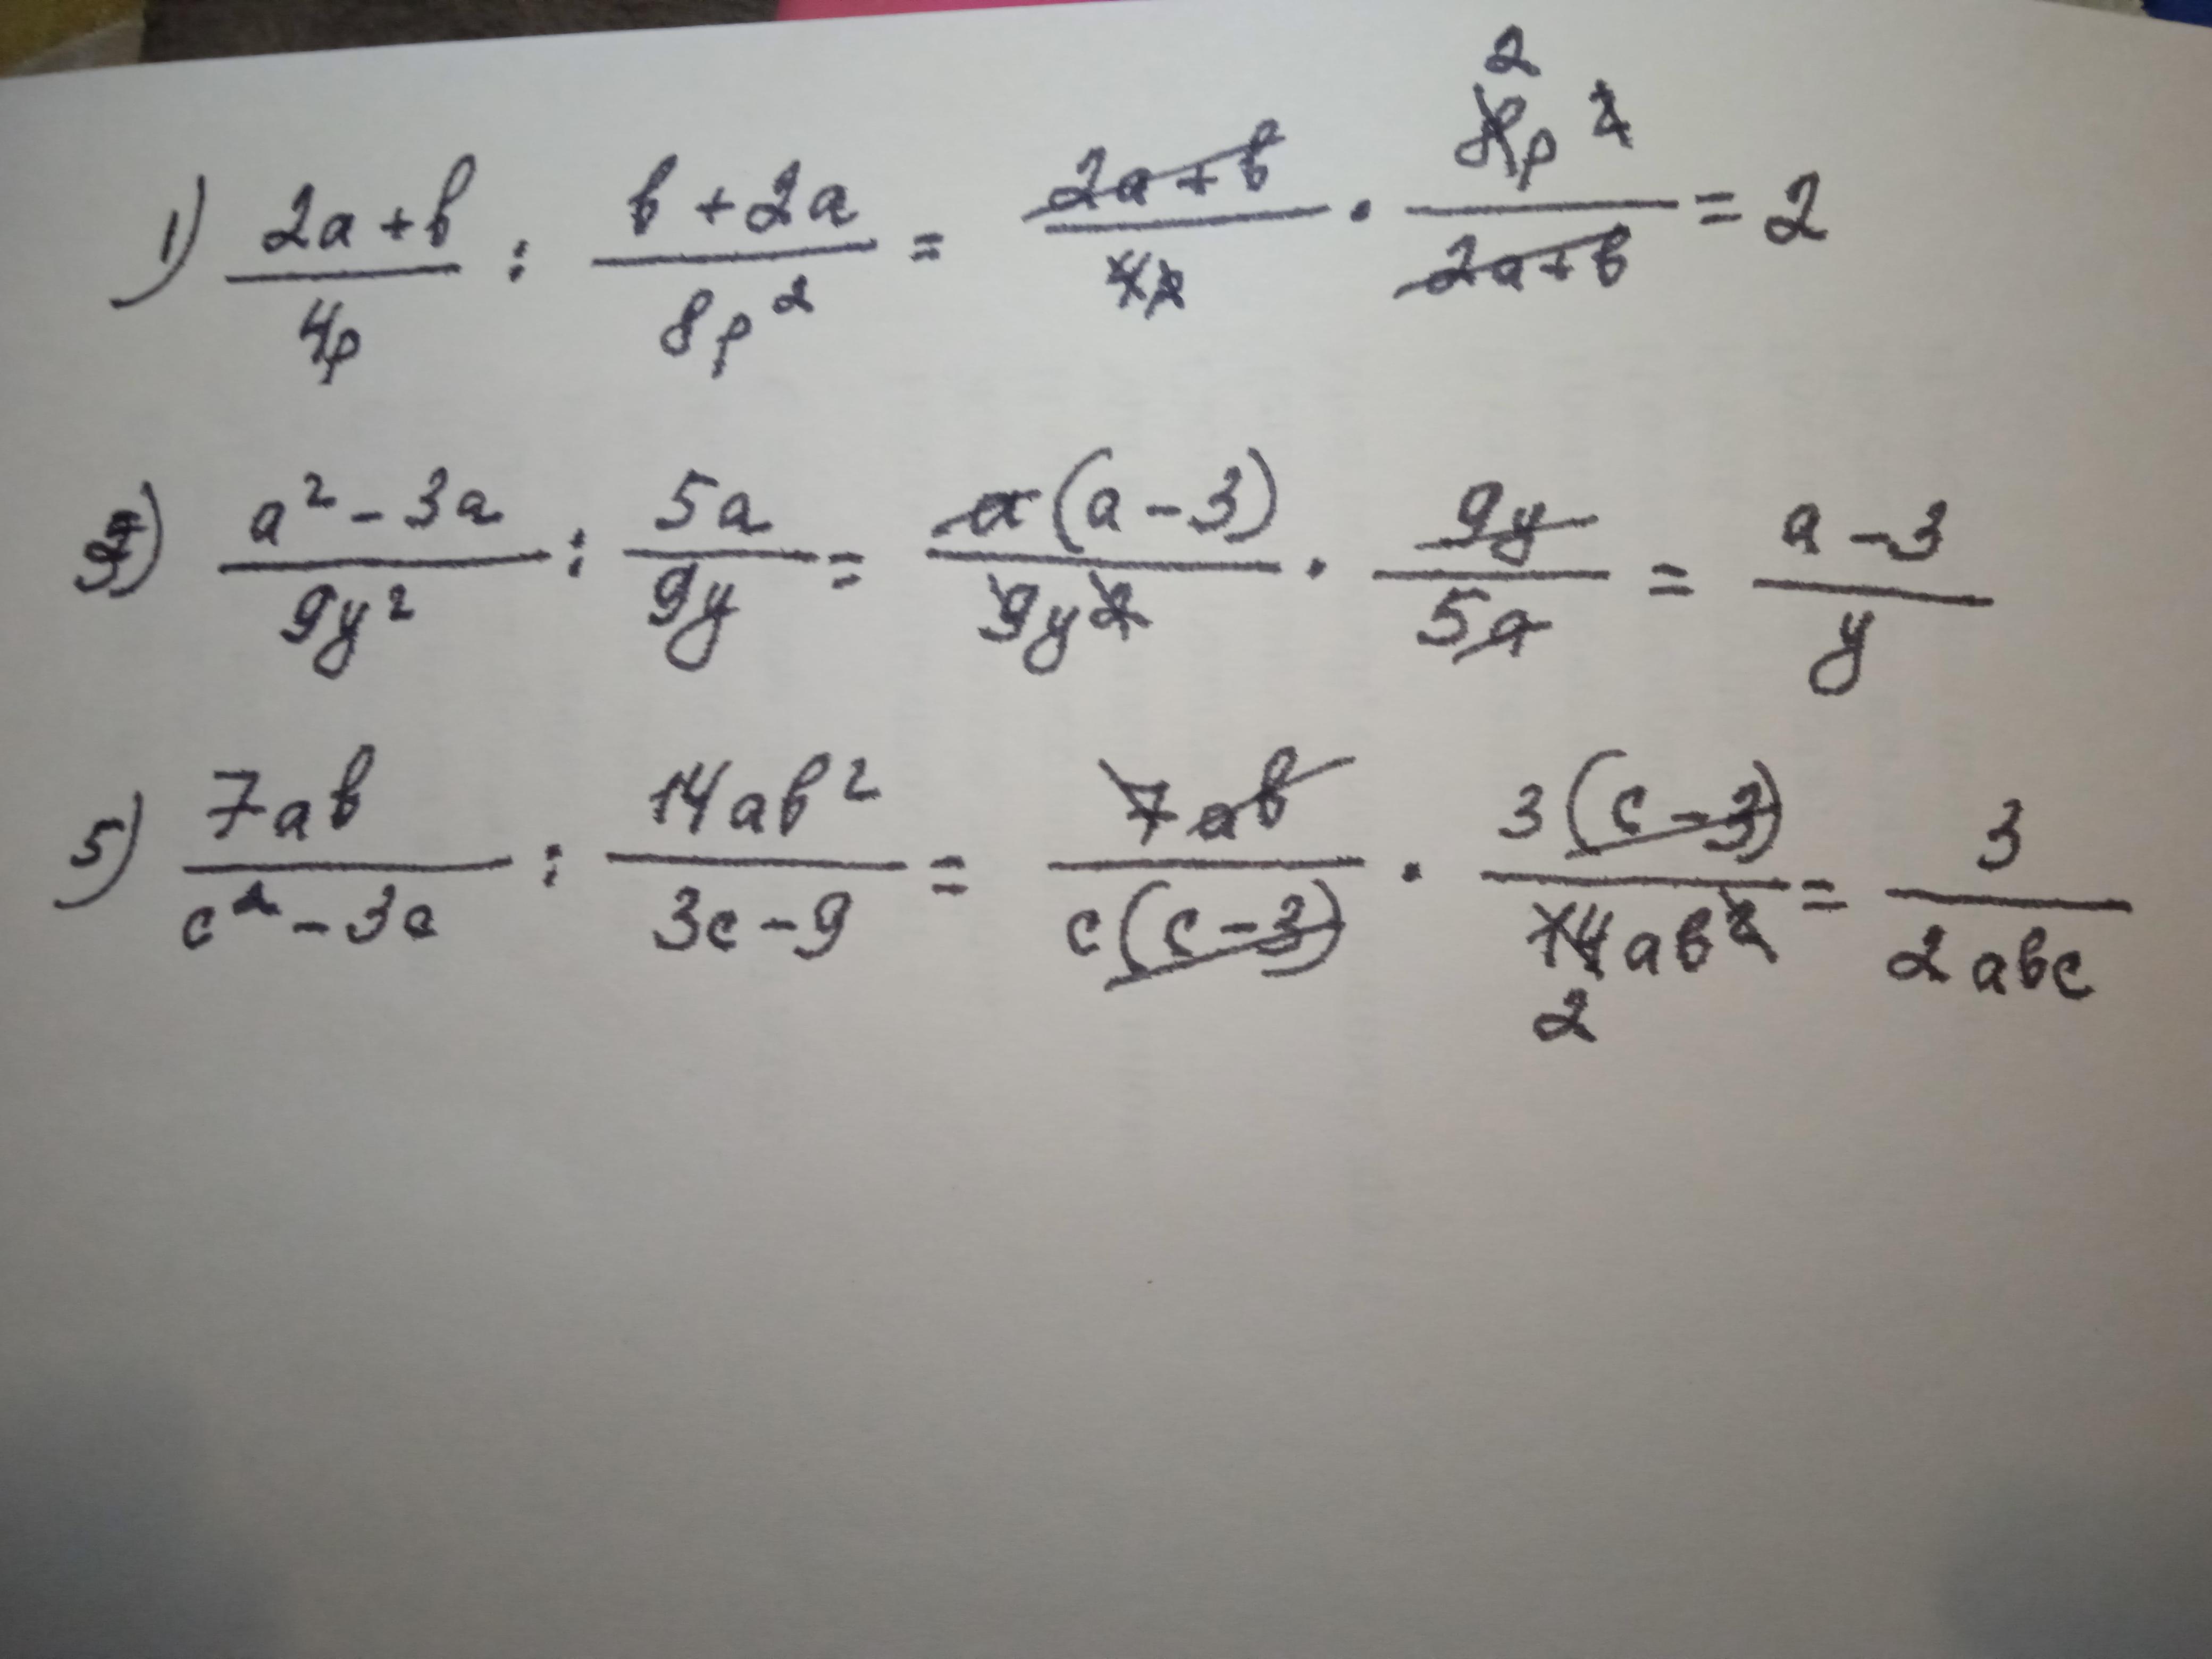 1) (2a+b)/(4p) : (b+2a)/(8p²) = (2a+b)/(4p) · (8p²)/(2a+b) = 2
2
3) (a²-3a)/(9y²) : (5a)/(9y) = (a(a-3))/(9y²) · (9y)/(5a) = (a-3)/(y)
5) (7ab)/(c²-3c) : (14ab²)/(3c-9) = (7ab)/(c(c-3)) · (3(c-3))/(14ab²) = (3)/(2abc)
2